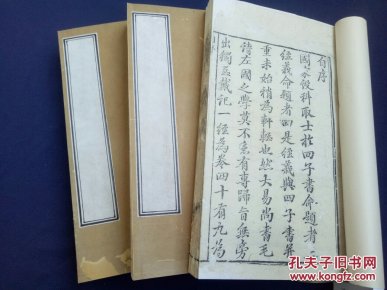 自序
國家設科取士於四子書命題者一
經義命題者四是經義與四子書并
重未始稍為軒輊也然大易尚書毛
詩左國之學莫不各有專歸旨無旁
出獨至戴記一經為卷四十有九為